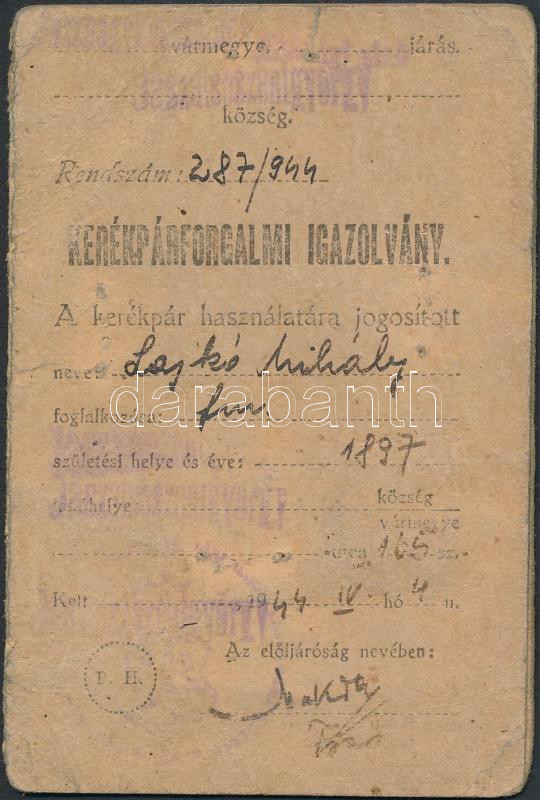 vármegye. járás.
község.
Rendszám: 287/944
KERÉKPÁRFORGALMI IGAZOLVÁNY.
A kerékpár használatára jogosított
neve: Lajkó Mihály
darabanth
foglalkozása: fm.
születési helye és éve: 1897
lakóhelye község
vármegye
utca 165 sz.
Kelt 1944 IV. hó 4 n.
Az előljáróság nevében:
P. H.